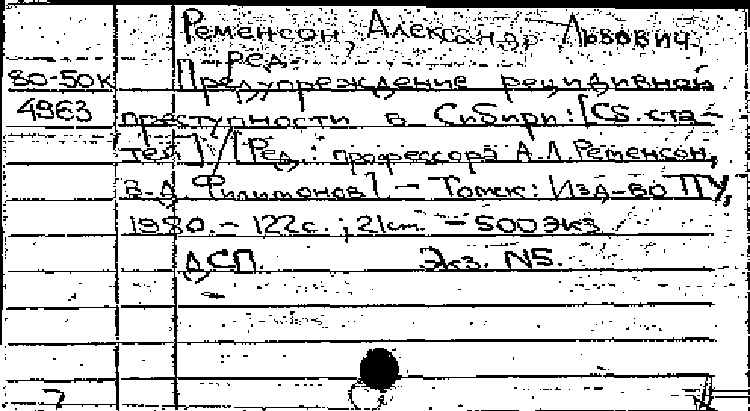 Ременсон, Александр Львович,
ред.
80-50к Предупреждение рецидивной
4963 преступности в Сибири: [Сб. ста-
тей] / [Ред.: профессора А.Л. Ременсон,
В.Д. Филимонов]. - Томск: Изд-во ТГУ,
1980. - 122с.; 21см. - 500экз
ДСП. Экз. N5.